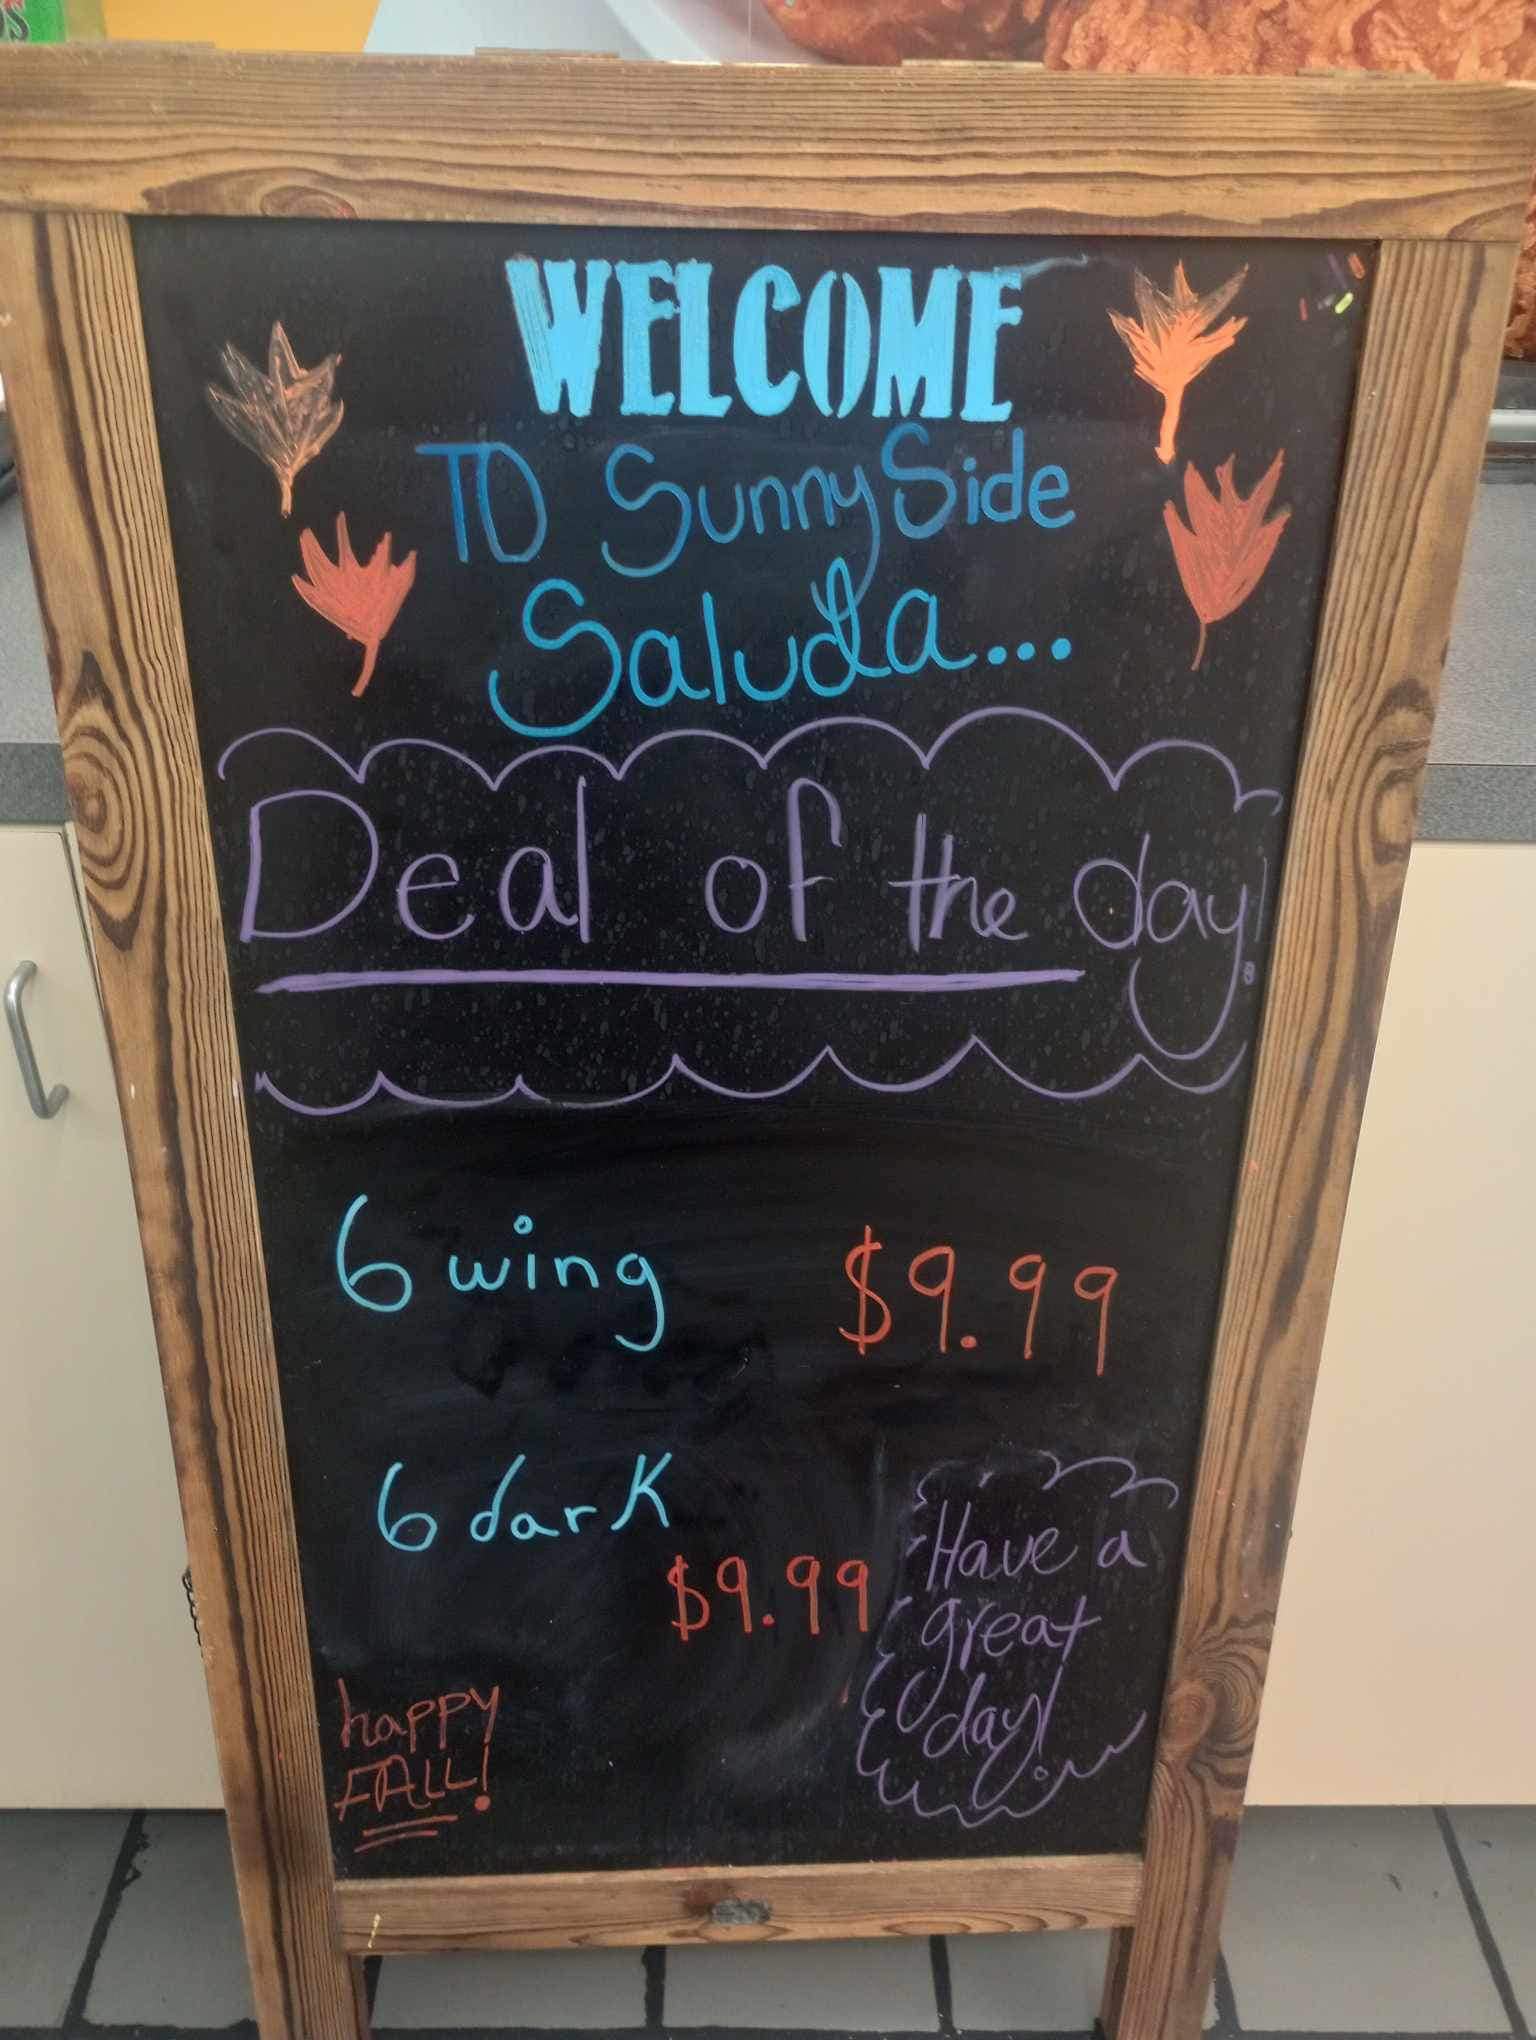 WELCOME
TO SunnySide
Saluda...
Deal of the day!
6 wing $9.99
6 dark
$9.99
Have a
great
day!
happy
FALL!